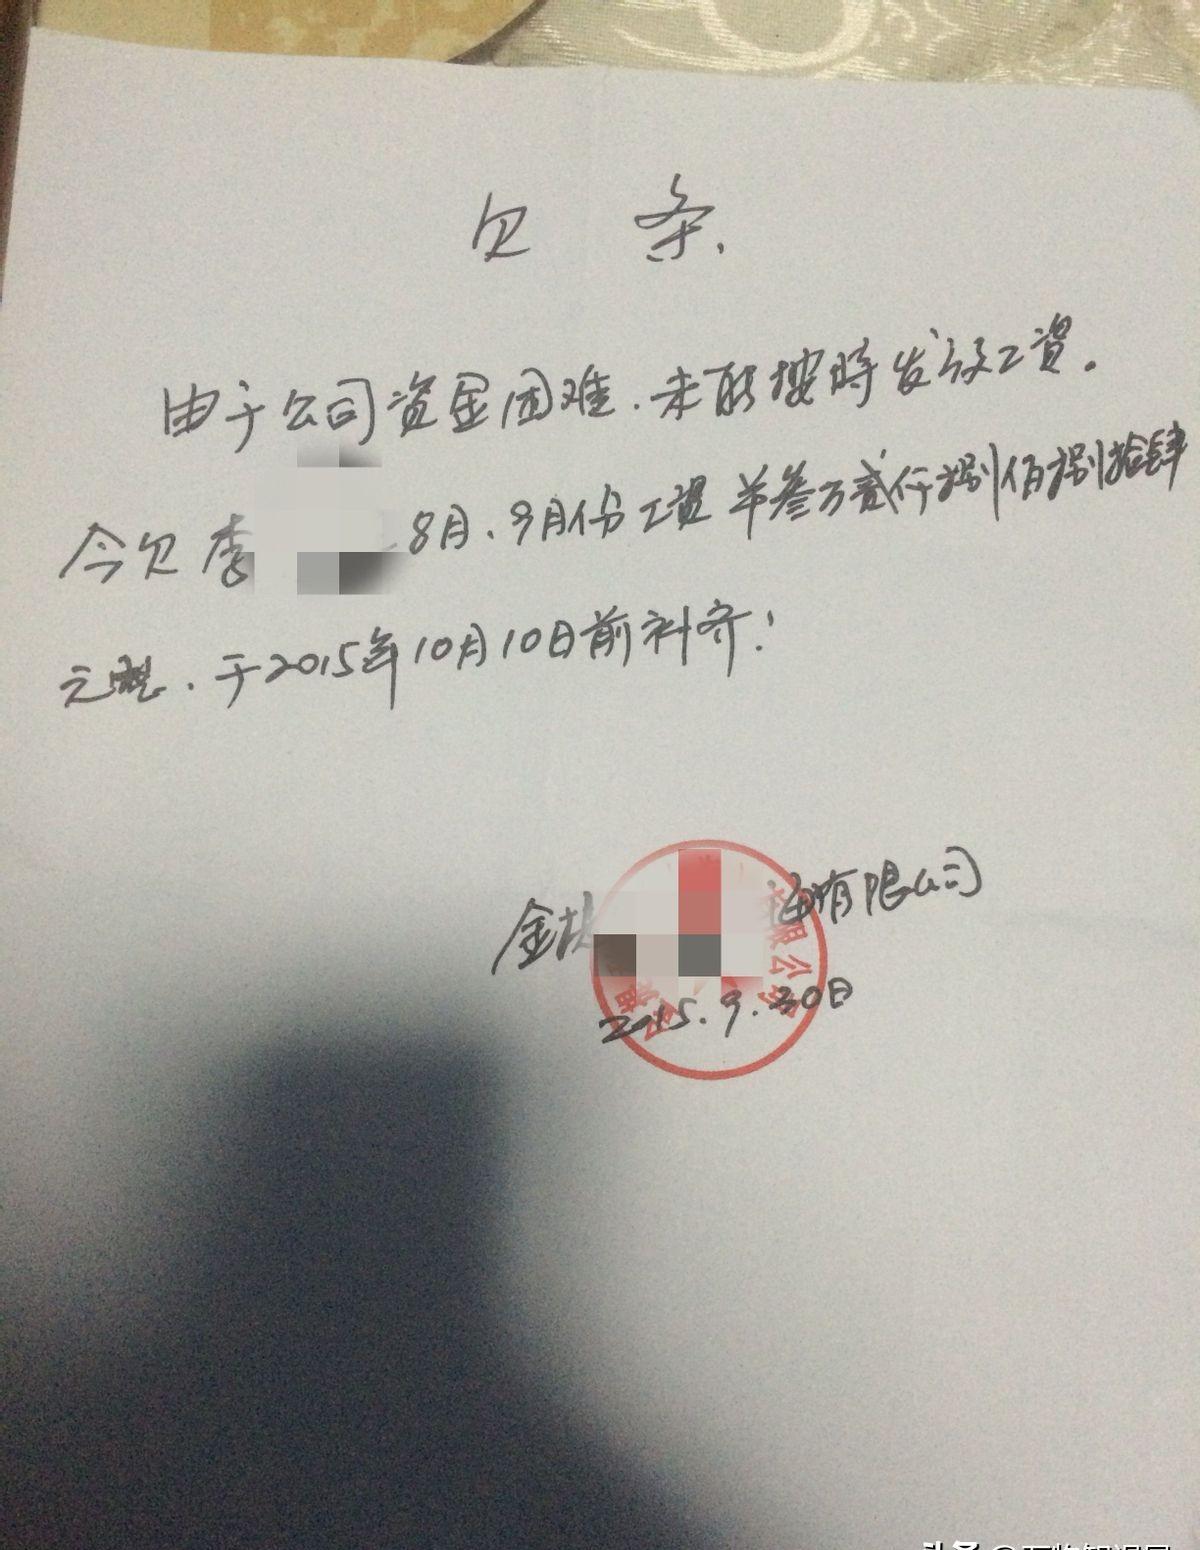 欠 条.
由于公司资金困难.未能按時发放工資。
今欠李 8月、9月份工资 羊叁万贰仟捌佰捌拾肆
元整、于2015年10月10日前补齐!
金 有限公司
限公司
2015.9.30日
头条